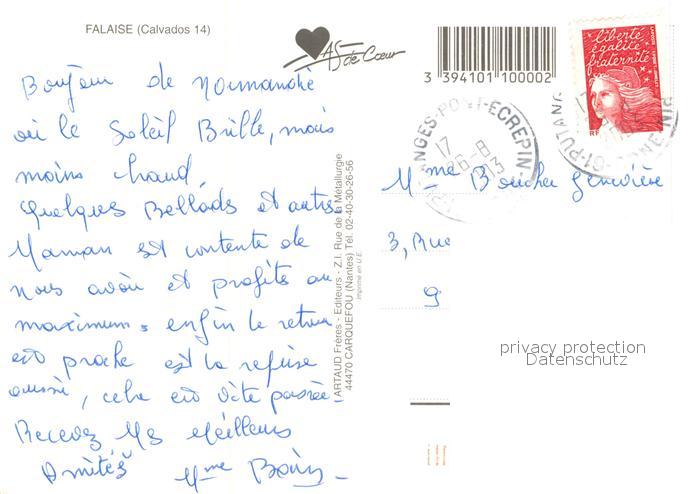 FALAISE (Calvados 14)
As de Cœur
3 394101 100002
liberté
égalité
fraternité
RF
LUQUET
PUTANGES-PONT-ECREPIN
17
26-8
61-PUTANGES
Bonjour de Normandie
où le Soleil Brille, mais
moins chaud
Quelques Ballads et autres
Maman est contente de
nous avoir et profite au
maximum. enfin le retour
est proche et la refuse
aussi, cela est vite passé.
Recevez Mes Meilleurs
Amitiés Mme
Mme Boucher Geneviève
3, Rue
9
ARTAUD Frères - Editeurs - Z.I. Rue de la Métallurgie
44470 CARQUEFOU (Nantes) Tél. 02-40-30-26-56
Imprimé en U.E.
privacy protection
Datenschutz